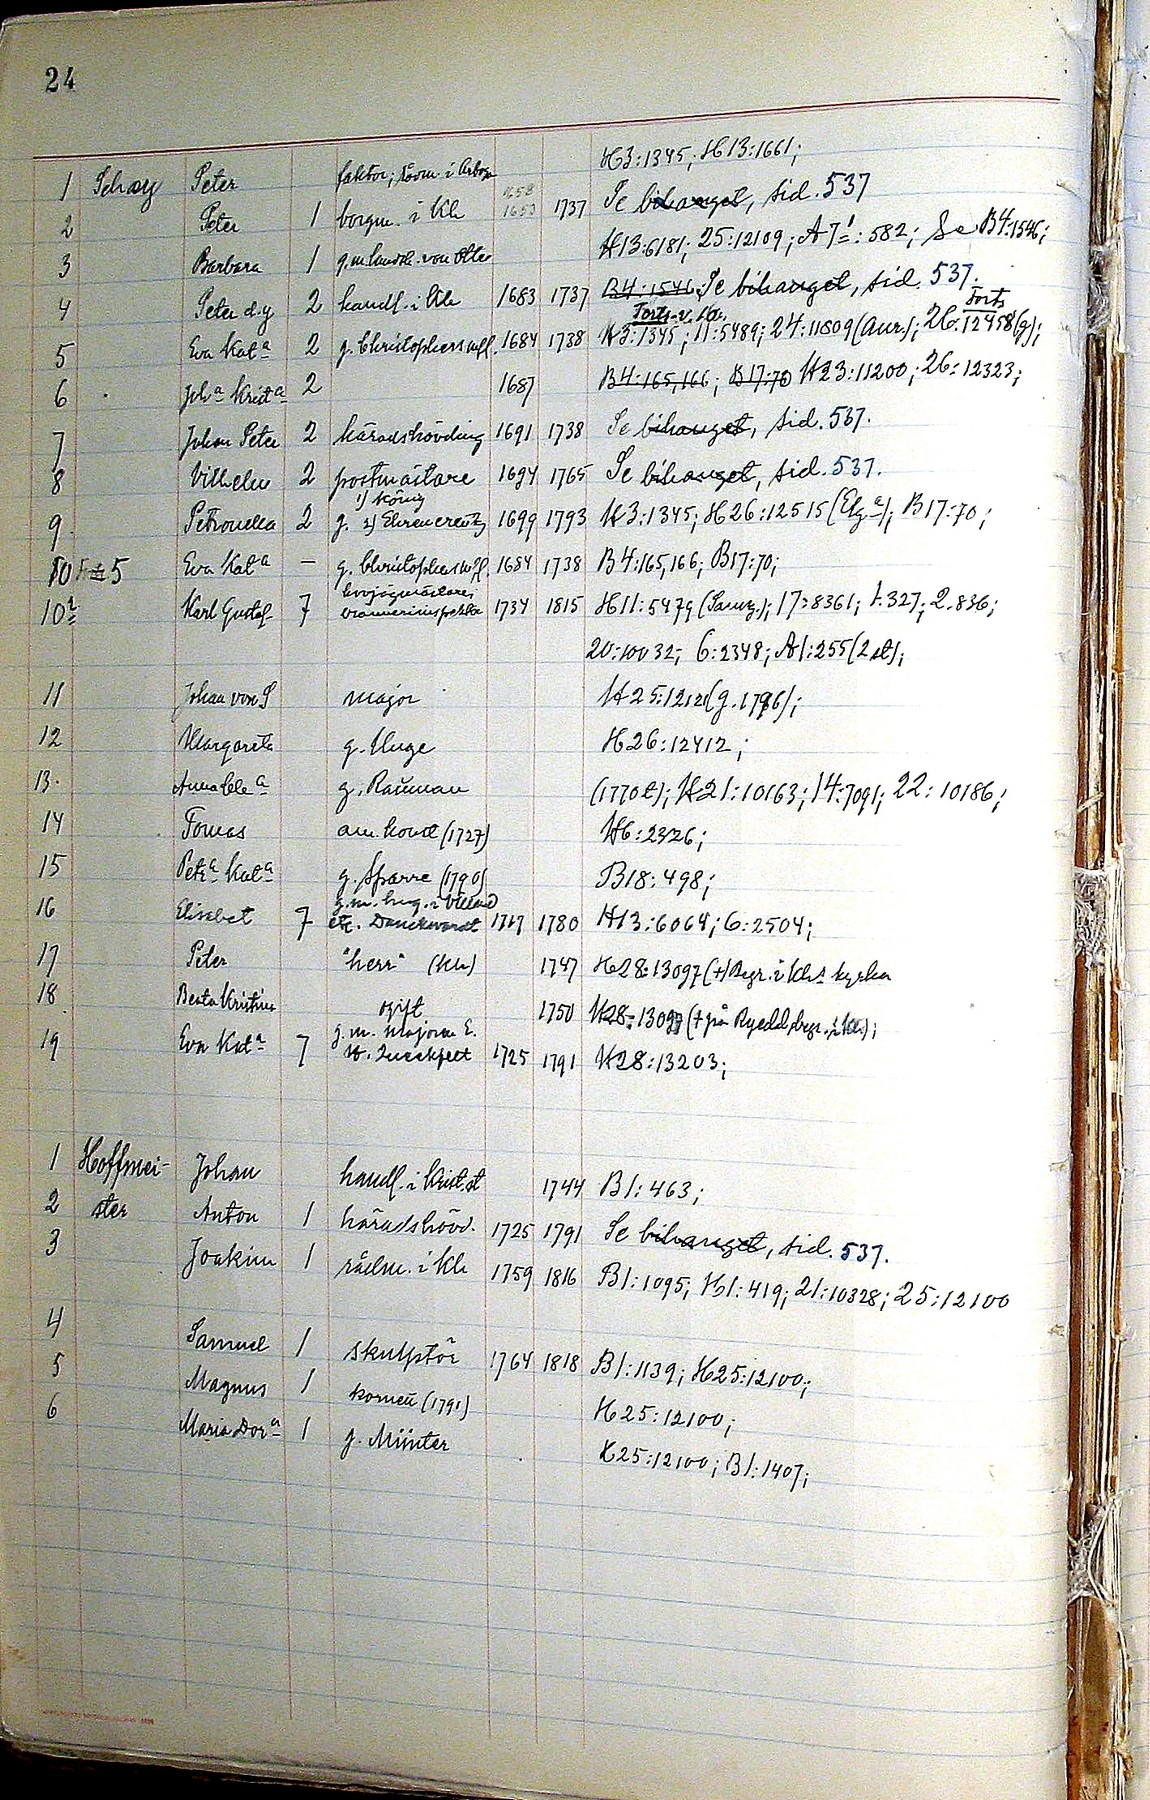 24
1 Schay Peter faktor; rådm i Arboga H3:1345; H13:1661;
2 Peter 1 borgm. i Kh 1658 1653 1737 Se bihanget, sid. 537
3 Barbara 1 g.m. landsh. von Otter H13:6181; 25:12109; A7:582; Se B4:1546;
4 Peter d.y 2 handl. i Kh 1683 1737 B4:1546; Se bihanget, sid. 537.
Forts. Forts
5 Eva Kata 2 g. Christophersson 1684 1738 H3:1345; 11:5489; 24:11809 (Aur.); 26:12458 (g);
6 Joha Krista 2 1687 B4:165,166; B17:70 H23:11200; 26:12323;
7 Johan Peter 2 häradshövding 1691 1738 Se bihanget, sid. 537.
8 Vilhelm 2 postmästare 1694 1765 Se bihanget, sid. 537.
1) König
9 Petronella 2 g. 2) Ehrencreutz 1699 1793 H3:1345; H26:12515 (Elga); B17:70;
10 5 Eva Kata – g. 1684 1738 B4:165,166; B17:70;
hovjägmästare;
10½ Karl Gustaf 7 1734 1815 H11:5479; 17:8361; 1:327; 2:836;
20:10032; 6:2348; A1:255 (2 st);
11 Johan von S major H25:12121 (g. 1796);
12 Margareta g. Unge H26:12412;
13. g. Rauman (1770 t); H21:10163; 14:7091; 22:10186;
14 Tomas am. (1727) H6:2326;
15 Petra Kata g. Sparre (1790) B18:498;
g.m. i
16 Elisabet 7 etc. Danckwardt 1717 1780 H13:6064; 6:2504;
17 Peter "herr" (Kh) 1747 H28:13097 (+) Begr. i Khs kyrka
18 Beata Kristina ogift 1750 H28:13097 (+ på Ryedd, begr. i Kh);
g.m. majoren E.
19 Eva Kata 7 1725 1791 H28:13203;
1 Hoffmei- Johan handl. i Krist.st 1744 B1:463;
2 ster Anton 1 häradshövd. 1725 1791 Se bihanget, sid. 537.
3 Joakim 1 rådm. i Kh 1759 1816 B1:1095; H1:419; 21:10328; 25:12100
4 Samuel 1 skulptör 1764 1818 B1:1139; H25:12100;
5 Magnus 1 kornett (1791) H25:12100;
6 Maria Dora 1 g. Münter H25:12100; B1:1407;